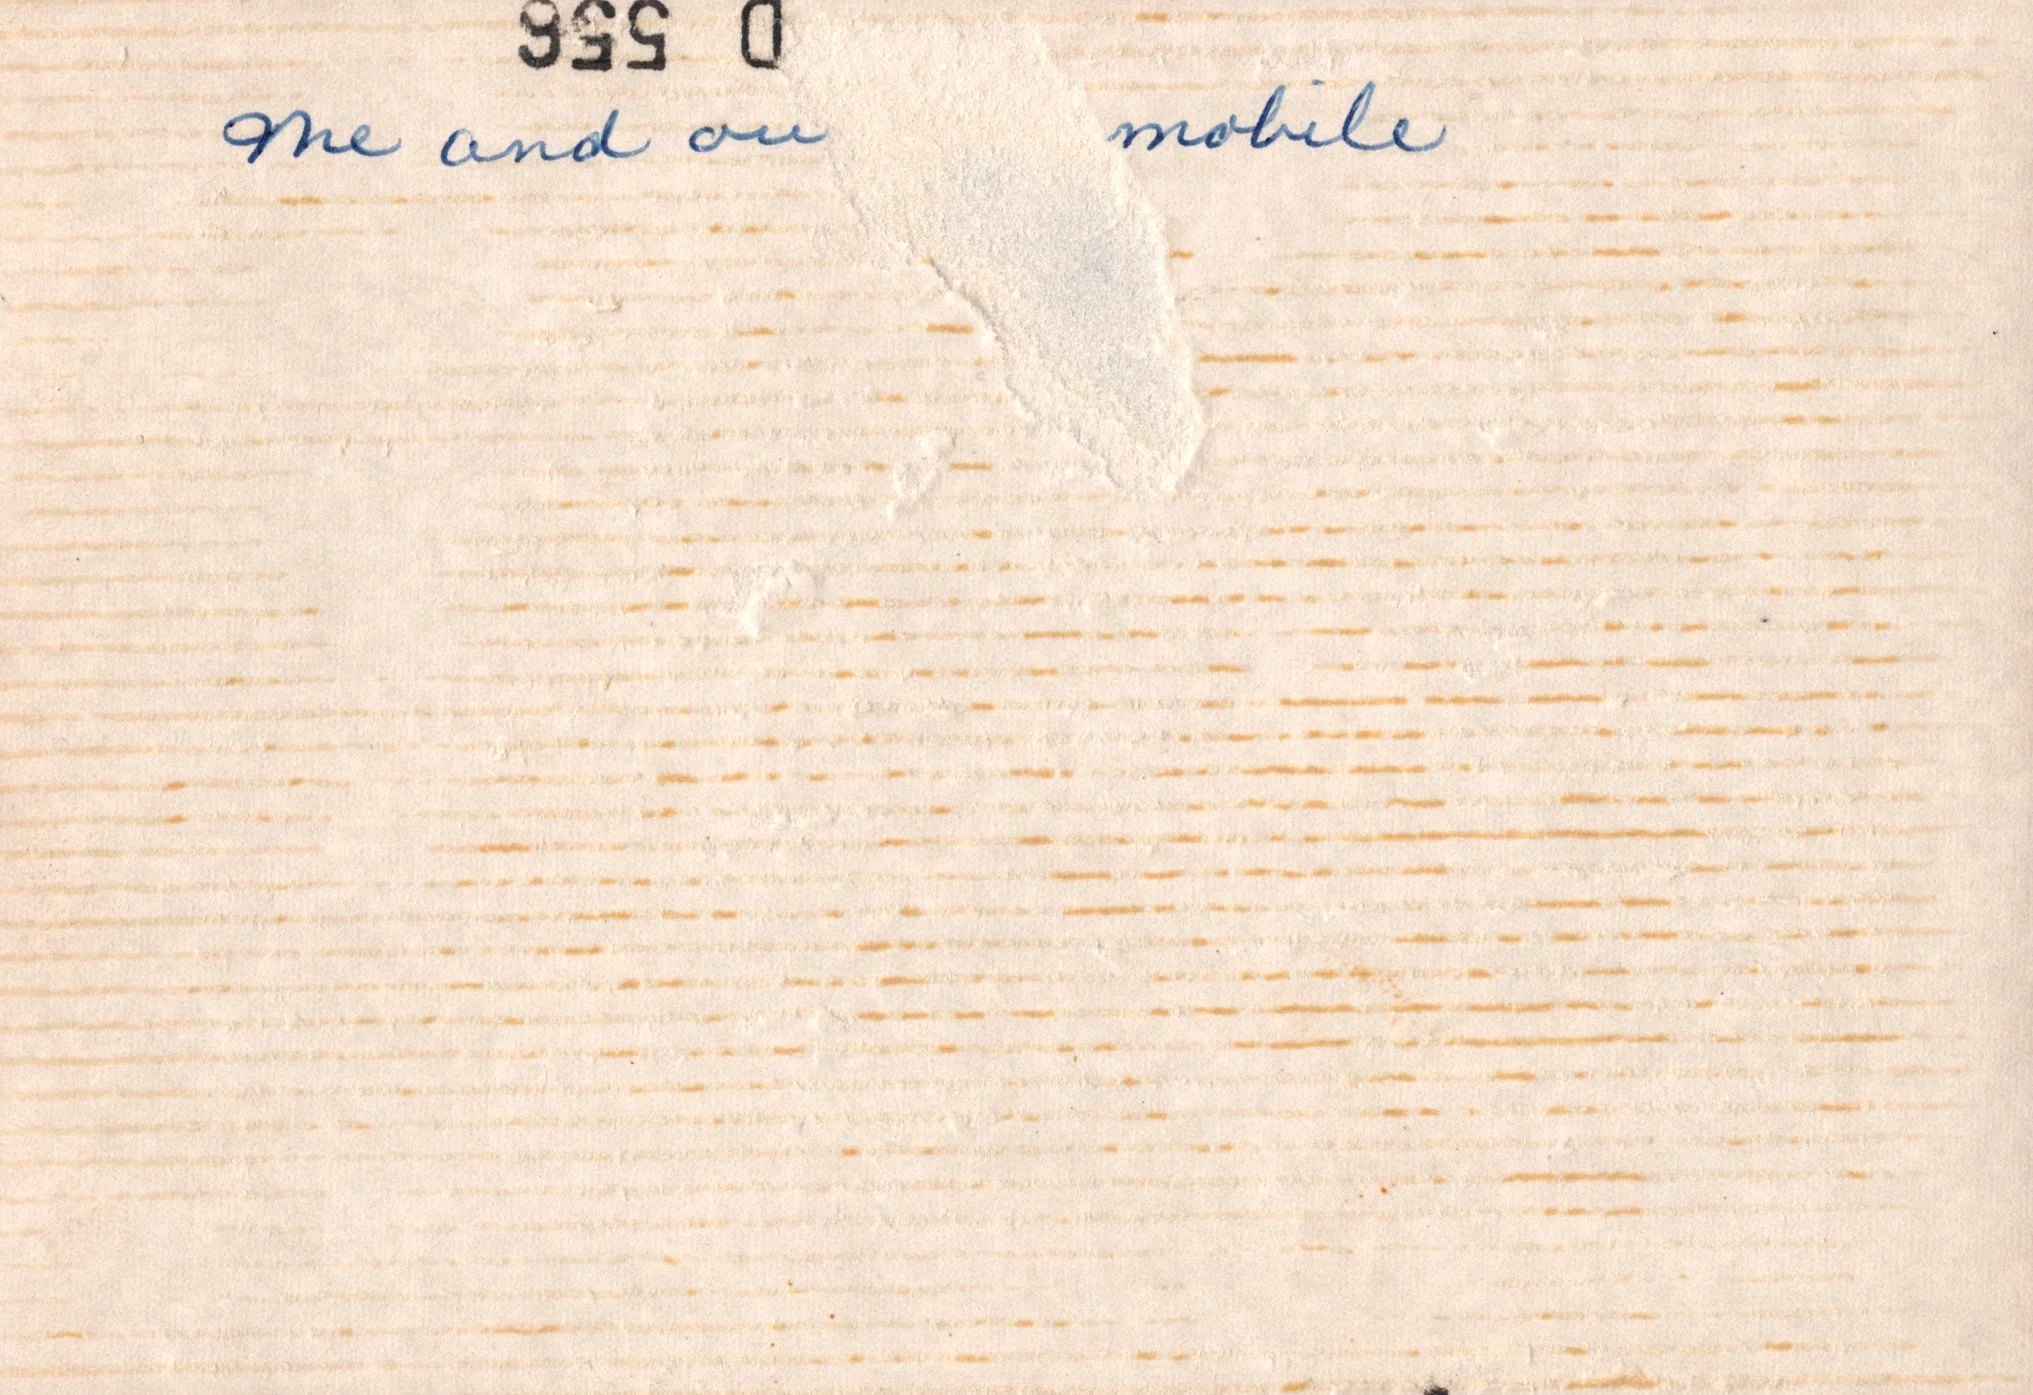 D 556
Me and ou mobile